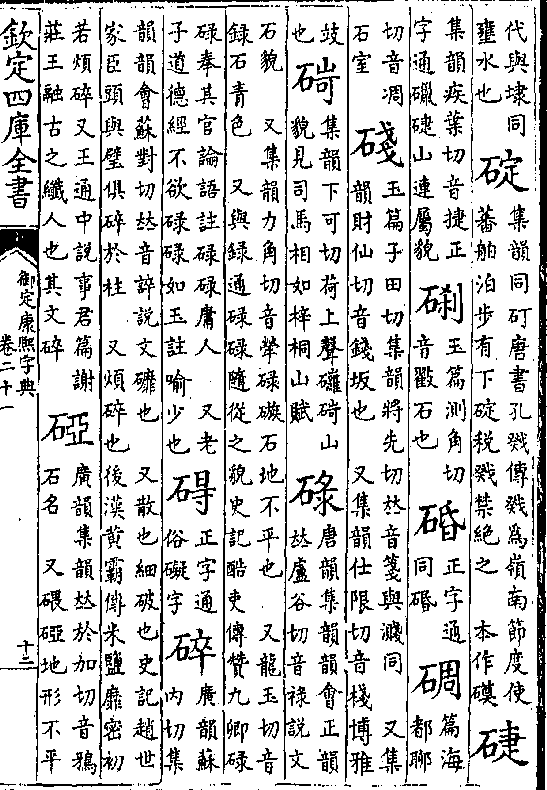 代與埭同
壅水也
碇
集韻同矴唐書孔戣傳戣爲嶺南節度使
蕃舶泊步有下碇税戣禁絕之　本作磸
集韻疾葉切音捷正
字通山連屬貌
玉篇測角切
音齪石也
碈
正字通
同
碉
篇海
都聊
切音凋
石室
碊
玉篇子田切集韻將先切𠀤音箋與濺同　又集
韻財仙切音錢坂也　又集韻仕限切音棧博雅
攱
也
碕
集韻下可切荷上聲碕山
貌見司馬相如梓桐山賦
碌
唐韻集韻韻會正韻
𠀤盧谷切音祿說文
石貌　又集韻力角切音犖碌石地不平也　又龍玉切音
録石青色　又與録通碌碌隨從之貌史記酷吏傳贊九卿碌
碌奉其官論語註碌碌庸人　又老
子道德經不欲碌碌如玉註喻少也
碍
正字通
俗礙字
碎
廣韻蘇
内切集
韻韻會蘇對切𠀤音誶說文䃺也　又散也細破也史記趙世
家臣頭與璧俱碎於柱　又煩碎也後漢黃霸傳米鹽靡密初
若煩碎又王通中說事君篇謝
莊王融古之纖人也其文碎
䃁
廣韻集韻𠀤於加切音鴉
石名　又碨䃁地形不平
欽定四庫全書
御定康熙字典
卷二十一
十二